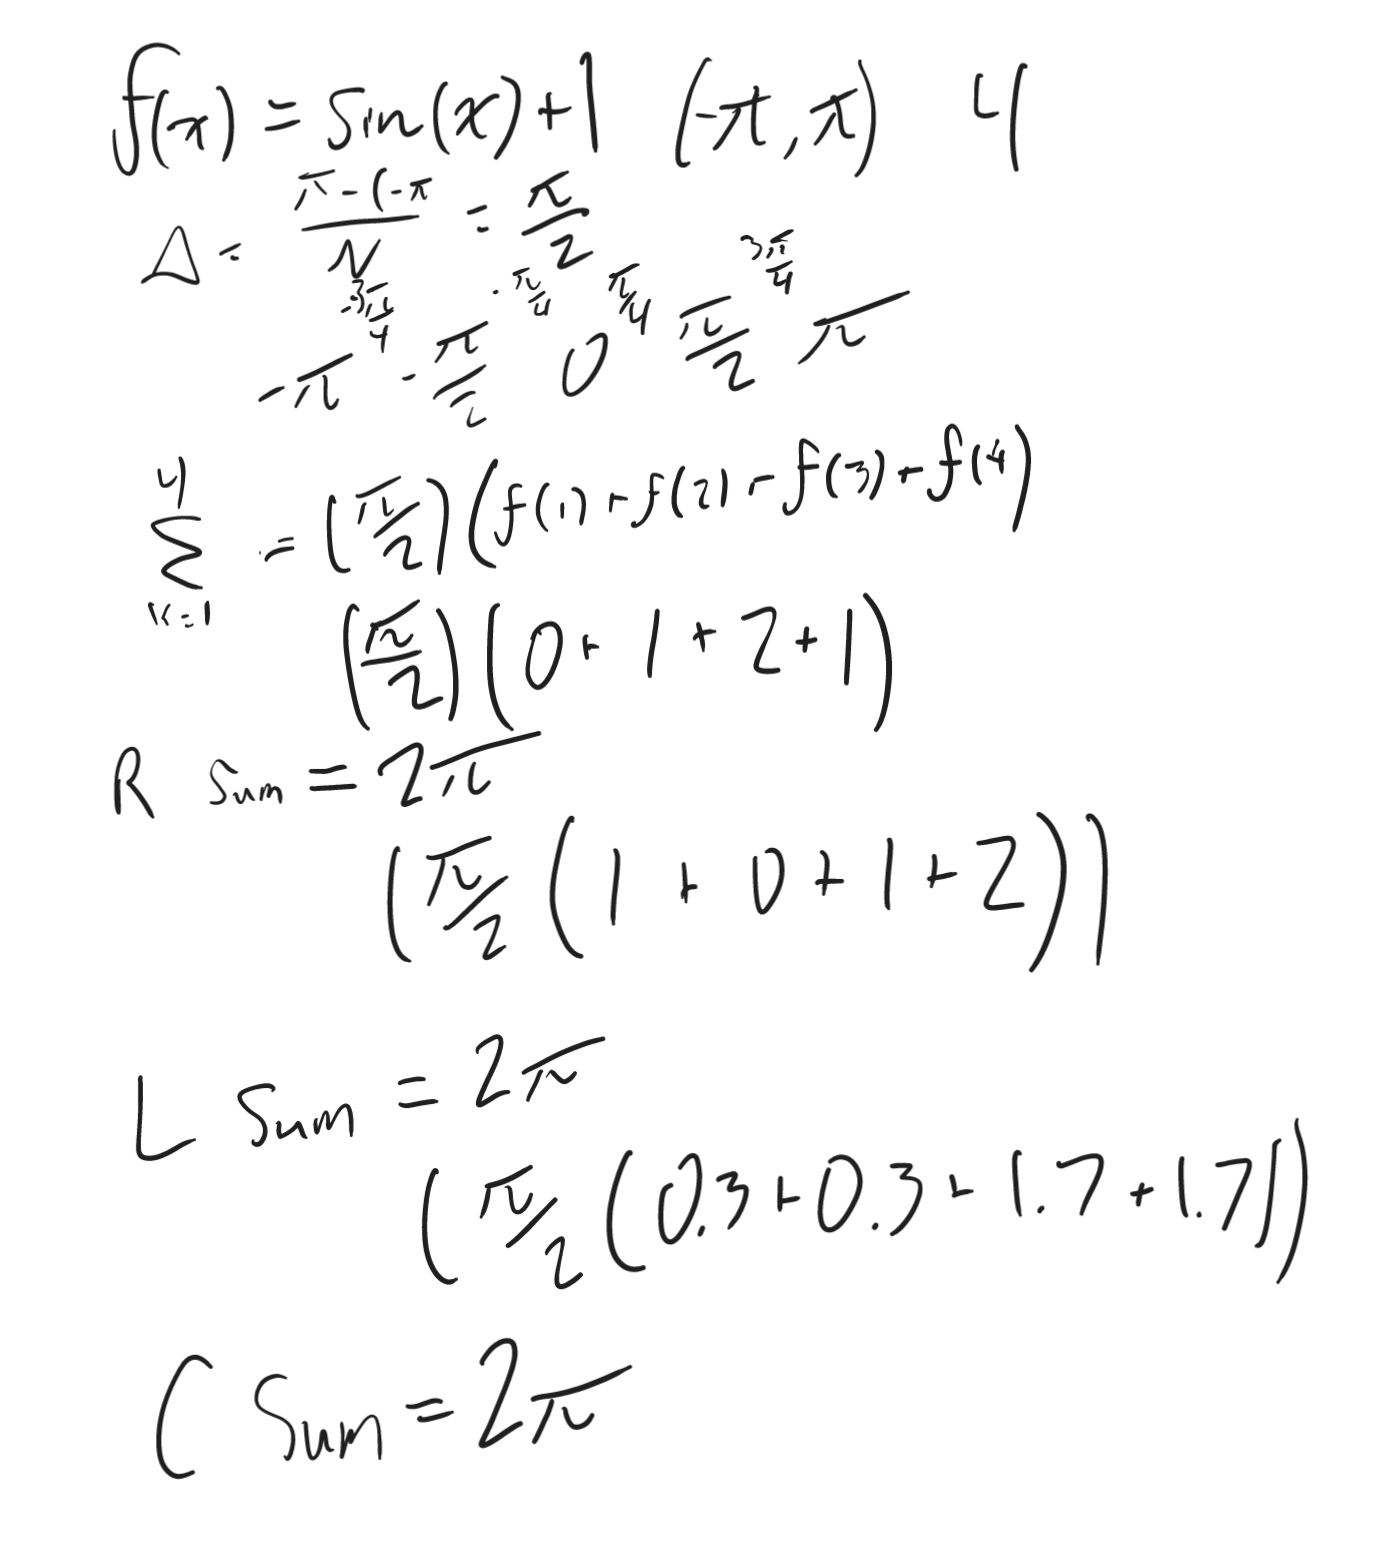 f(x) = sin(x)+1 (-π, π) 4
Δ = π-(-π / N = π/2
-3π/4 -π/4 π/4 3π/4
-π -π/2 0 π/2 π
4
Σ = (π/2)(f(1)+f(2)+f(3)+f(4)
K=1
(π/2)(0+1+2+1)
R Sum = 2π
(π/2(1+0+1+2))
L Sum = 2π
(π/2(0.3+0.3+1.7+1.7))
C Sum = 2π